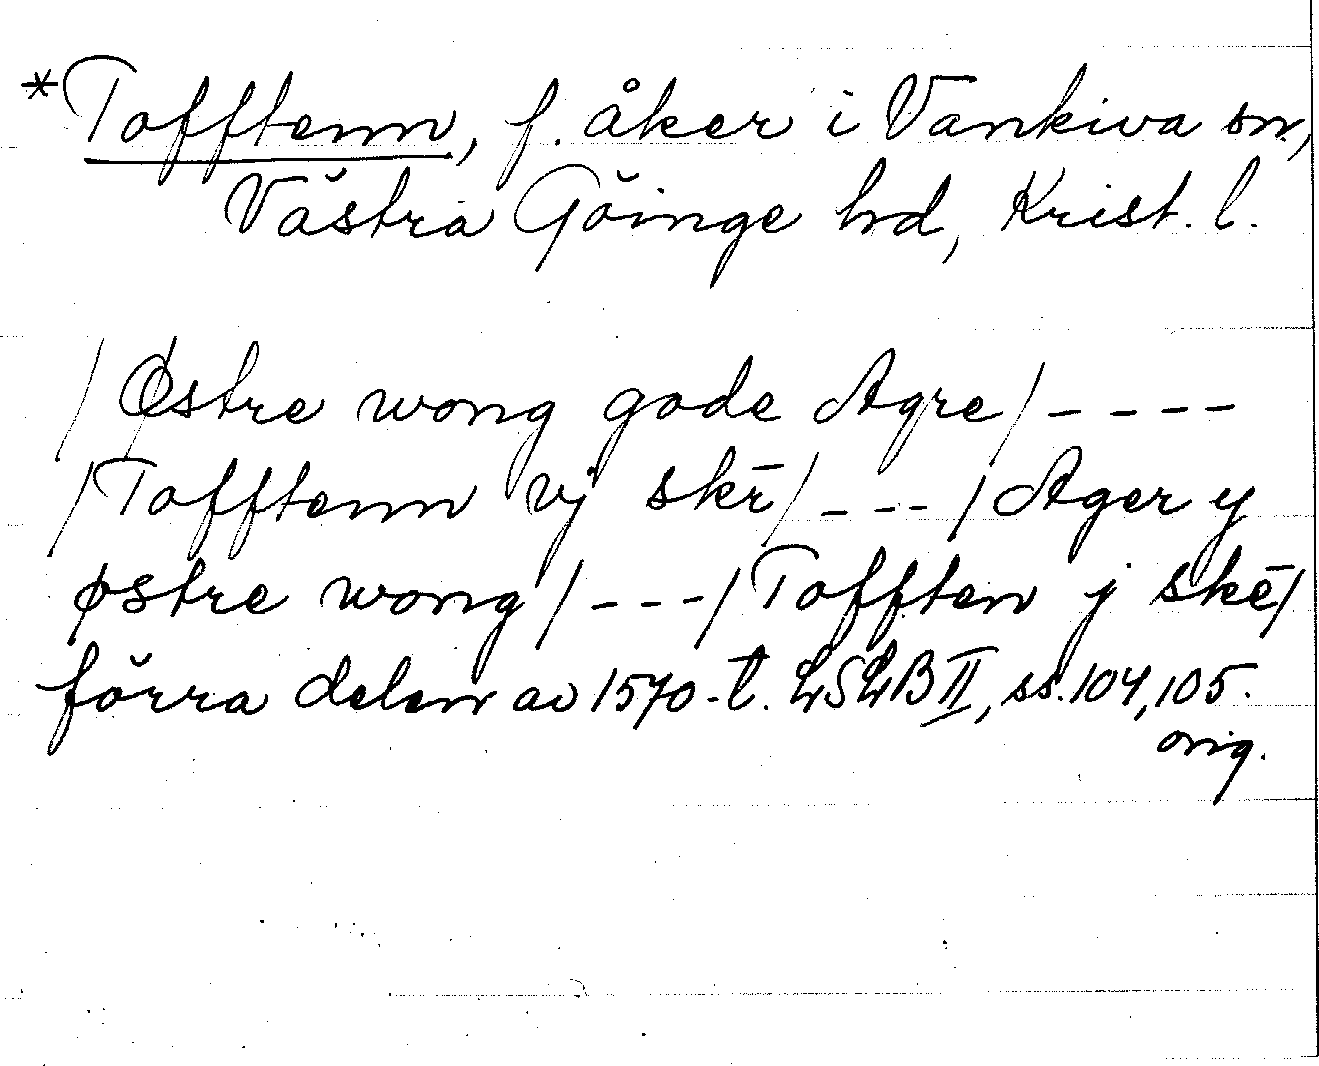 *Tofftenn, f. åker i Vankiva sn,
Västra Göinge hd, Krist. l.
/Østre wong gode Agre/----
/Tofftenn vj skē/---/Ager y
østre wong/---/Tofften j skē/
förra delen av 1570-t. LSLB II, ss. 104, 105.
orig.